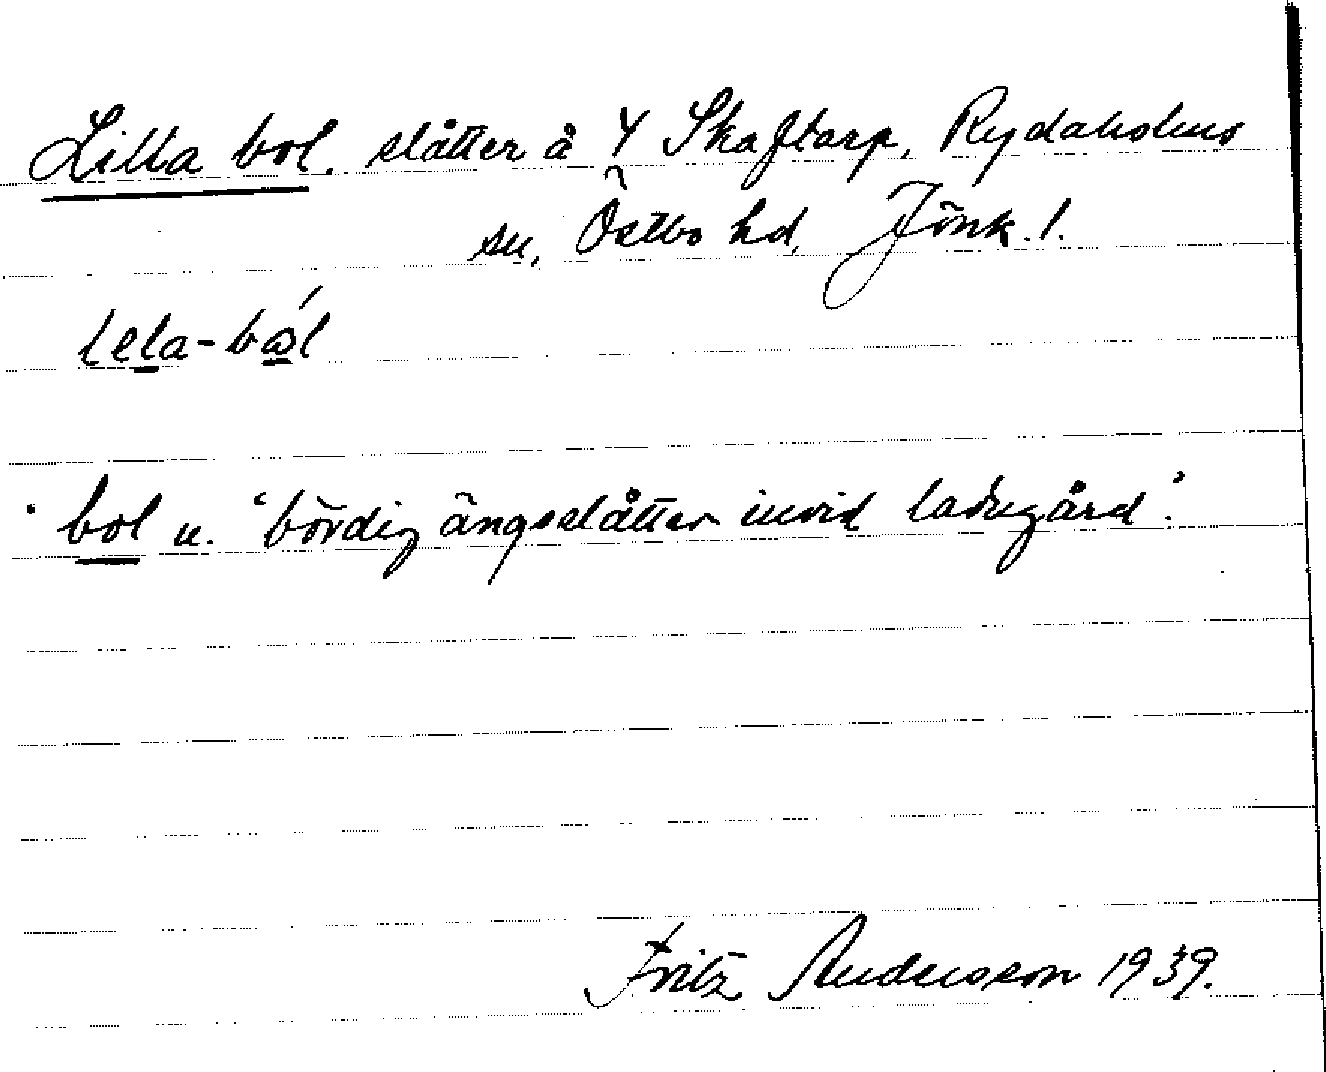 Lilla bol. slåtter å Y Skaftarp, Rydaholms
sn, Östbo hd, Jönk. l.
lela-bål
bol n. "bördig ängsslåtter invid ladugård".
Fritz Andersson 1939.